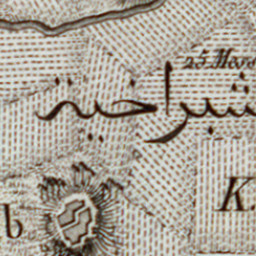 25 Mess
شبراخية
K.
b